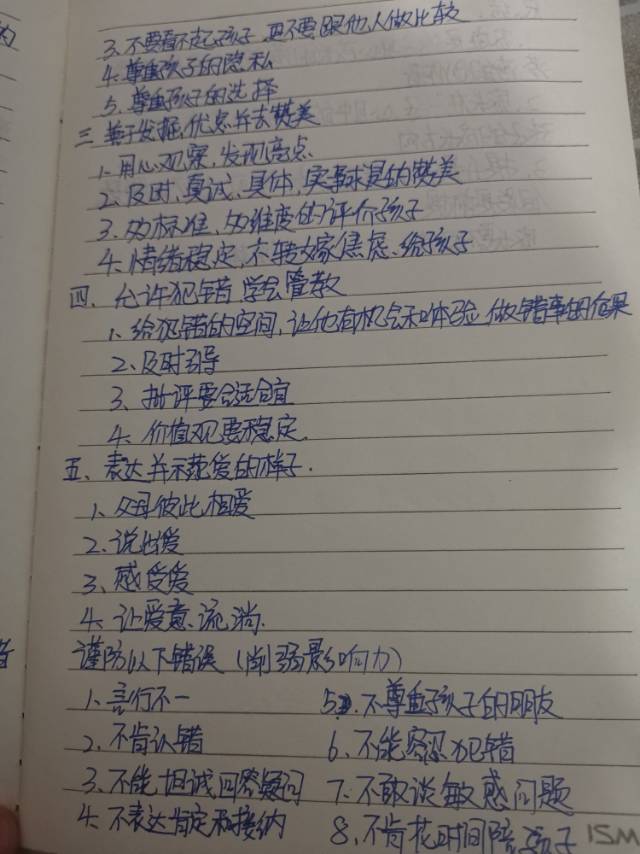 3. 不要看不起孩子,更不要跟他人做比较
4. 尊重孩子的隐私
5. 尊重孩子的选择
三 善于发掘优点并去赞美
1. 用心观察,发现亮点.
2. 及时,真诚,具体,实事求是的赞美
3. 多标准,多维度的评价孩子
4. 情绪稳定,不转嫁焦虑、给孩子
四、允许犯错 学会管教
1. 给犯错的空间,让他有机会和体验 做错事的后果
2. 及时引导
3、批评要合适合宜
4. 价值观要稳定.
五、表达并示范爱的样子.
1. 父母彼此相爱
2. 说出爱
3、感受爱
4. 让爱意、流淌.
谨防以下错误 (削弱影响力)
1. 言行不一 5. 不尊重孩子的朋友
2. 不肯认错 6. 不能容忍犯错
3. 不能坦诚回答疑问 7. 不敢谈敏感问题
4. 不表达肯定和接纳 8. 不肯花时间陪孩子
ISM